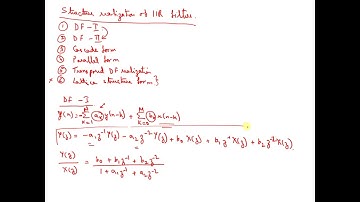 Structure realization of IIR filters.
① DF - I
② DF - II
③ Cascade form
④ Parallel form
⑤ Transposed DF realization
* ⑥ Lattice structure form }
DF - I
y(n) = -∑_{k=1}^{N} a_k y(n-k) + ∑_{k=0}^{M} b_k x(n-k)
Y(z) = -a₁z⁻¹Y(z) - a₂z⁻²Y(z) + b₀X(z) + b₁z⁻¹X(z) + b₂z⁻²X(z)
Y(z)/X(z) = (b₀ + b₁z⁻¹ + b₂z⁻²)/(1 + a₁z⁻¹ + a₂z⁻²)